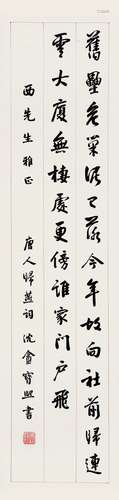 舊壘危巢泥已落今年故向社前歸連
雲大廈無棲處更傍誰家門户飛
西先生雅正 唐人歸燕詞 沈盦寶熙書